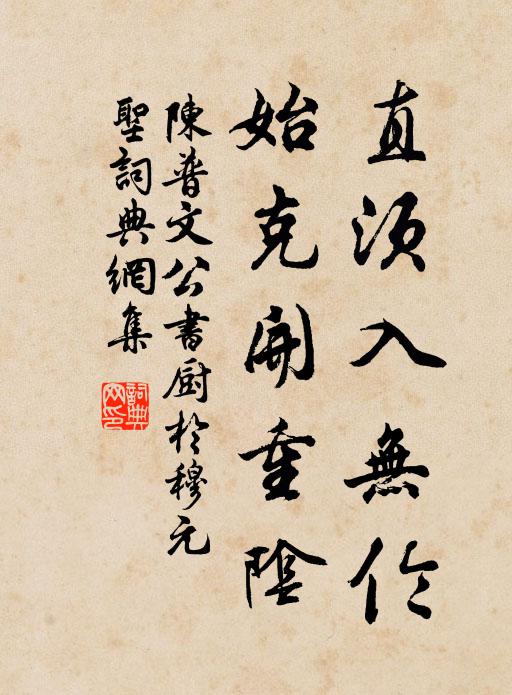 直須入無倫
始克開重陰
陳普文公書厨於穆元
聖詞典網集
詞典
网印